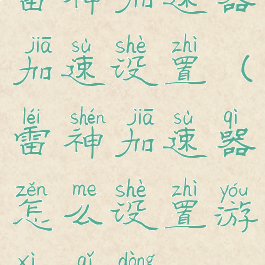 雷神加速器
jiā sù shè zhì
加速设置（
léi shén jiā sù qì
雷神加速器
zěn me shè zhì yóu
怎么设置游
xì qǐ dòng